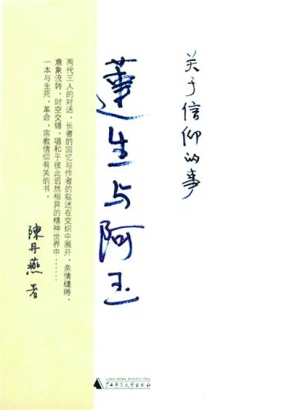 关于信仰的事
莲生与阿玉
两代三人的对话,长者的回忆与作者的叙述在交织中展开,亲情缱绻,
意象流转,时空交错,唱和于彼此迥然相异的精神世界中……
一本与生死、革命、宗教信仰有关的书。
陳丹燕 著
广西师范大学出版社